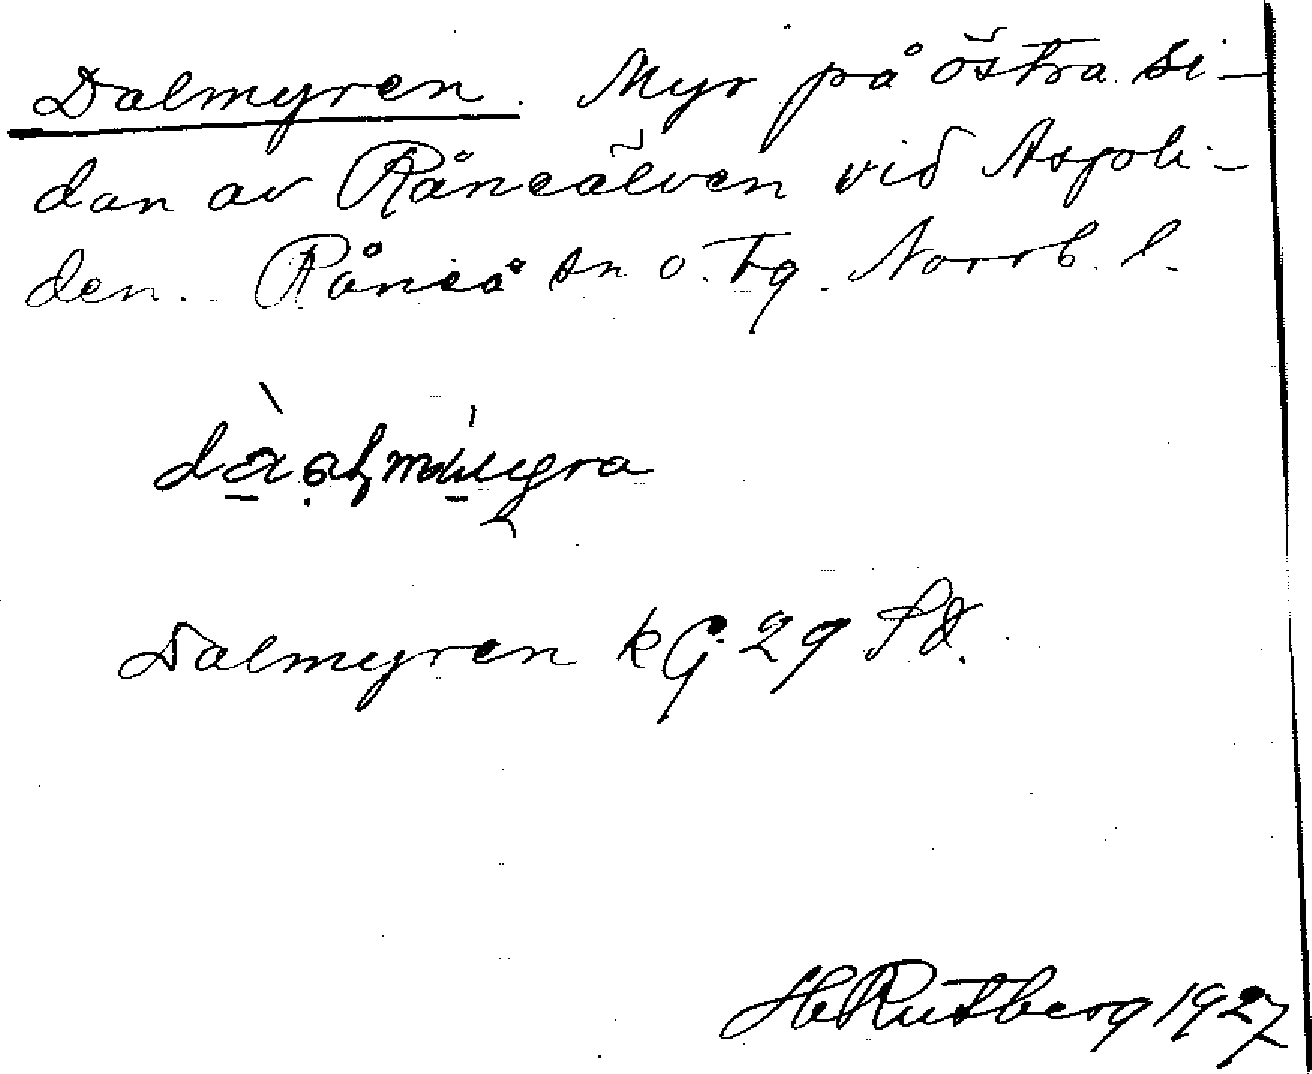 Dalmyren. Myr på östra si-
dan av Råneälven vid Aspli-
den. Råneå sn o. tg. Norrb. l.
Dalmyren kG 29
H Rutberg 1927